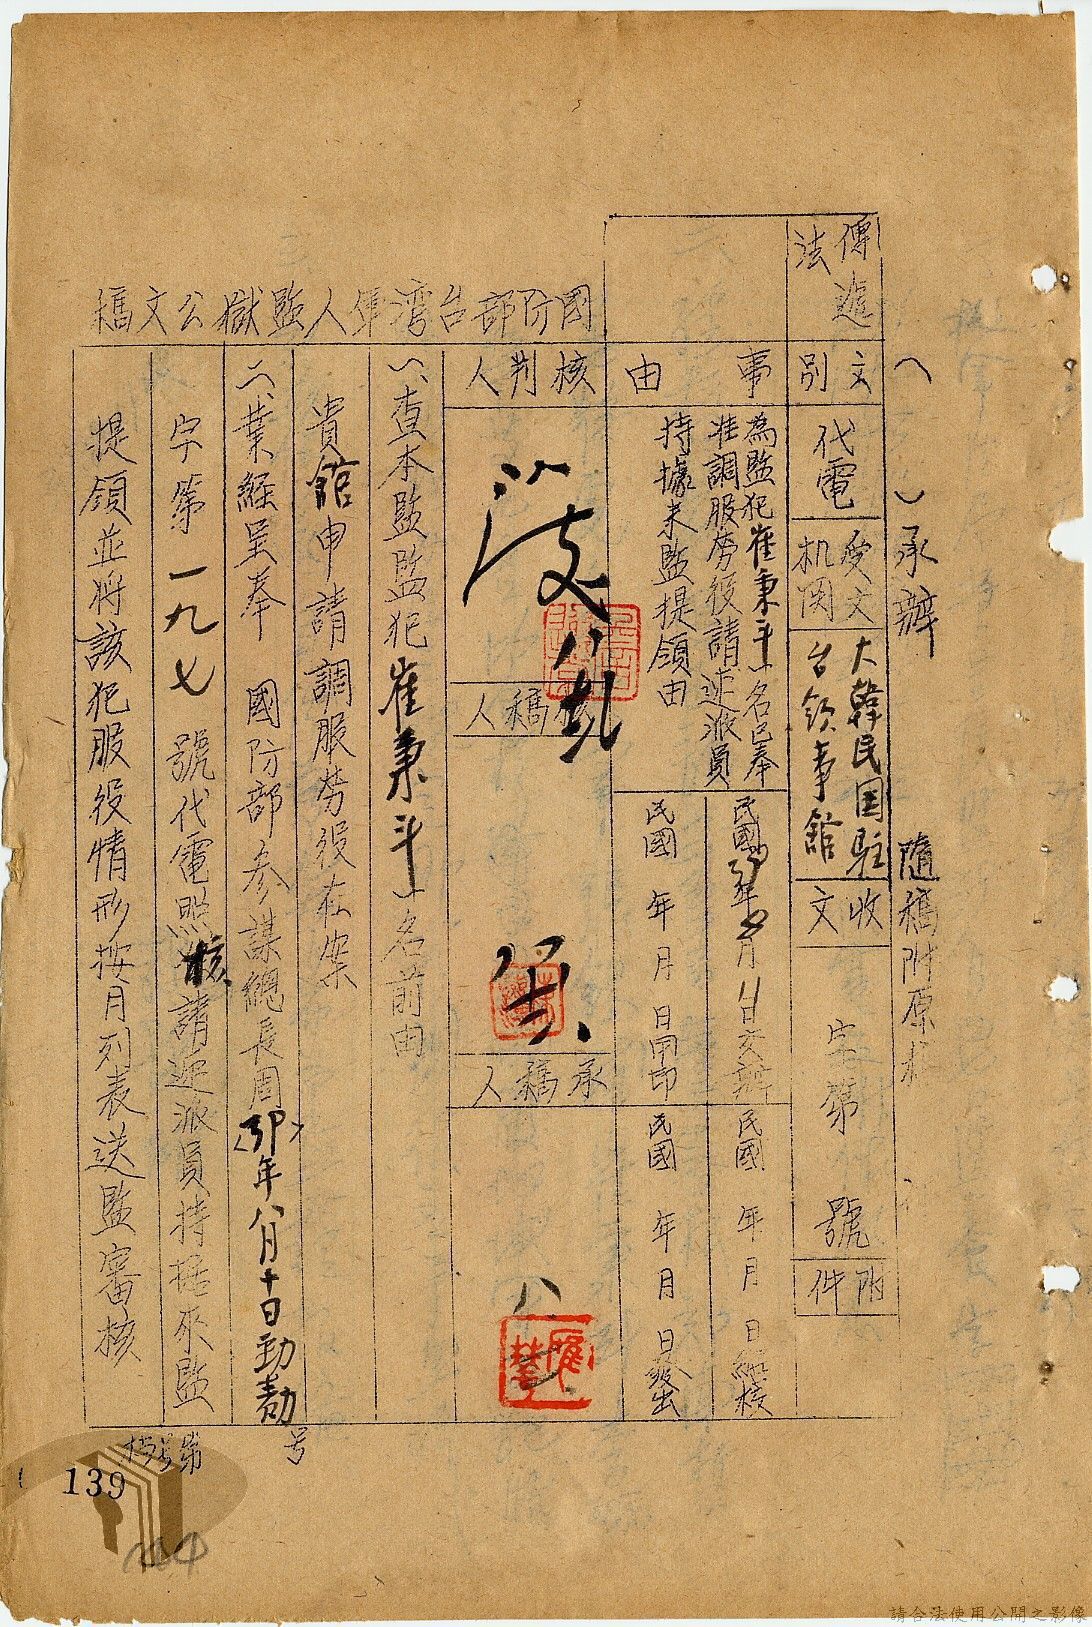 承辦
隨稿附原
傳遞
法
文別
代電
受文
机関
大韓民国駐
台領事館
收文
字第 號
附件
事由
為監犯崔秉斗一名已奉
准調服勞役請迅派員
持據来監提領由
民國 年 月 日交辦
民國 年 月 日繕校
民國 年 月 日用印
民國 年 月 日發出
國防部台湾軍人監獄公文稿
核判人
核稿人
承稿人
一、查本監監犯崔秉斗一名前由
貴館申請調服勞役在案
二、業經呈奉 國防部參謀總長周 年八月十日勁勣
字第一九七號代電照核請迅派員持据來監
提領並將該犯服役情形按月列表送監審核
号
139
請合法使用公開之影像